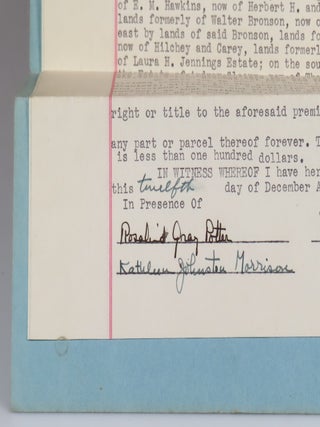 of E. M. Hawkins, now of Herbert H. and
lands formerly of Walter Bronson, now o
east by lands of said Bronson, lands f
now of Hilchey and Carey, lands formerl
of Laura H. Jennings Estate; on the sou
right or title to the aforesaid premi
any part or parcel thereof forever. T
is less than one hundred dollars.
IN WITNESS WHEREOF I have her
this twelfth day of December A
In Presence Of
Rosalind Gray Potter
Kathleen Johnston Morrison